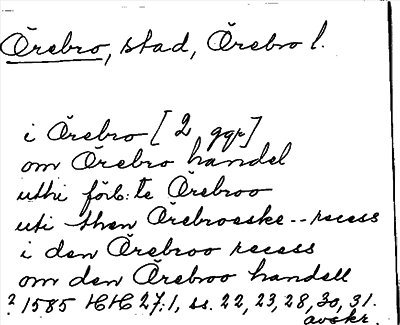 Örebro, stad, Örebro l.
i Örebro [2 ggr]
om Örebro handel
uthi förb:te Örebroo
uti then Örebroeske -- recess
i den Örebroo recess
om den Örebroo handell
? 1585 HH 27:1, ss. 22, 23, 28, 30, 31.
avskr.